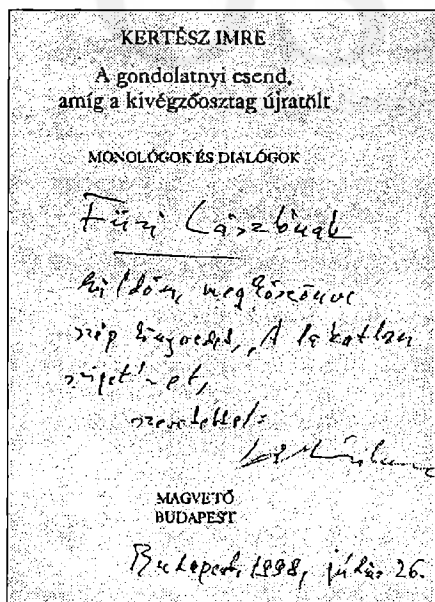 KERTÉSZ IMRE
A gondolatnyi csend,
amíg a kivégzőosztag újratölt
MONOLÓGOK ÉS DIALÓGOK
Füzi Lászlónak
küldöm, megköszönve
szép könyvedet, „A lakatlan
sziget"-et,
szeretettel:
MAGVETŐ
BUDAPEST
Budapest, 1998, július 26.